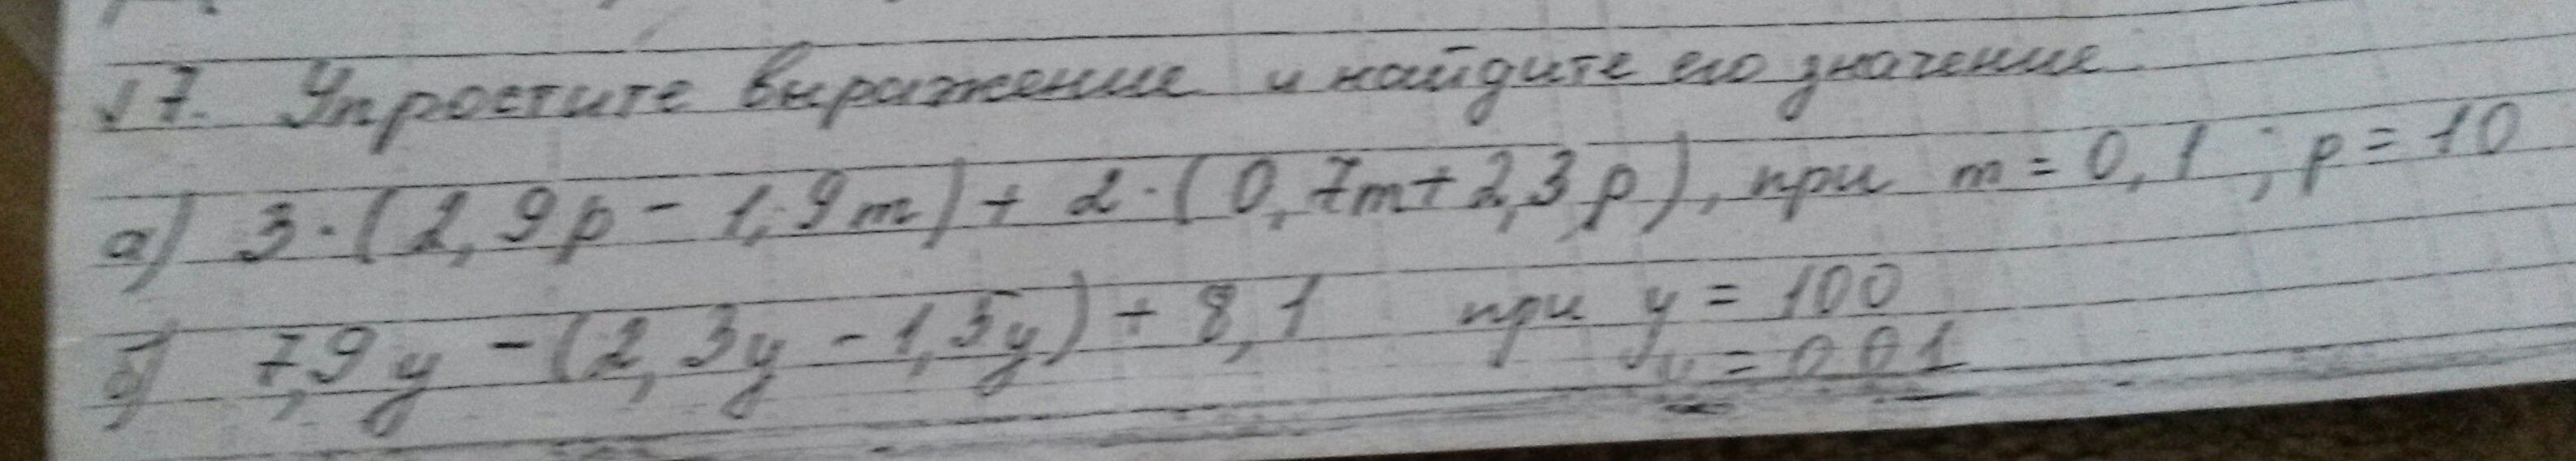 √7. Упростите выражение и найдите его значение.
а) 3·(2,9p - 1,9m) + 2·(0,7m + 2,3p), при m = 0,1; p = 10
б) 7,9y - (2,3y - 1,5y) + 8,1 при y = 100
y = 0,01